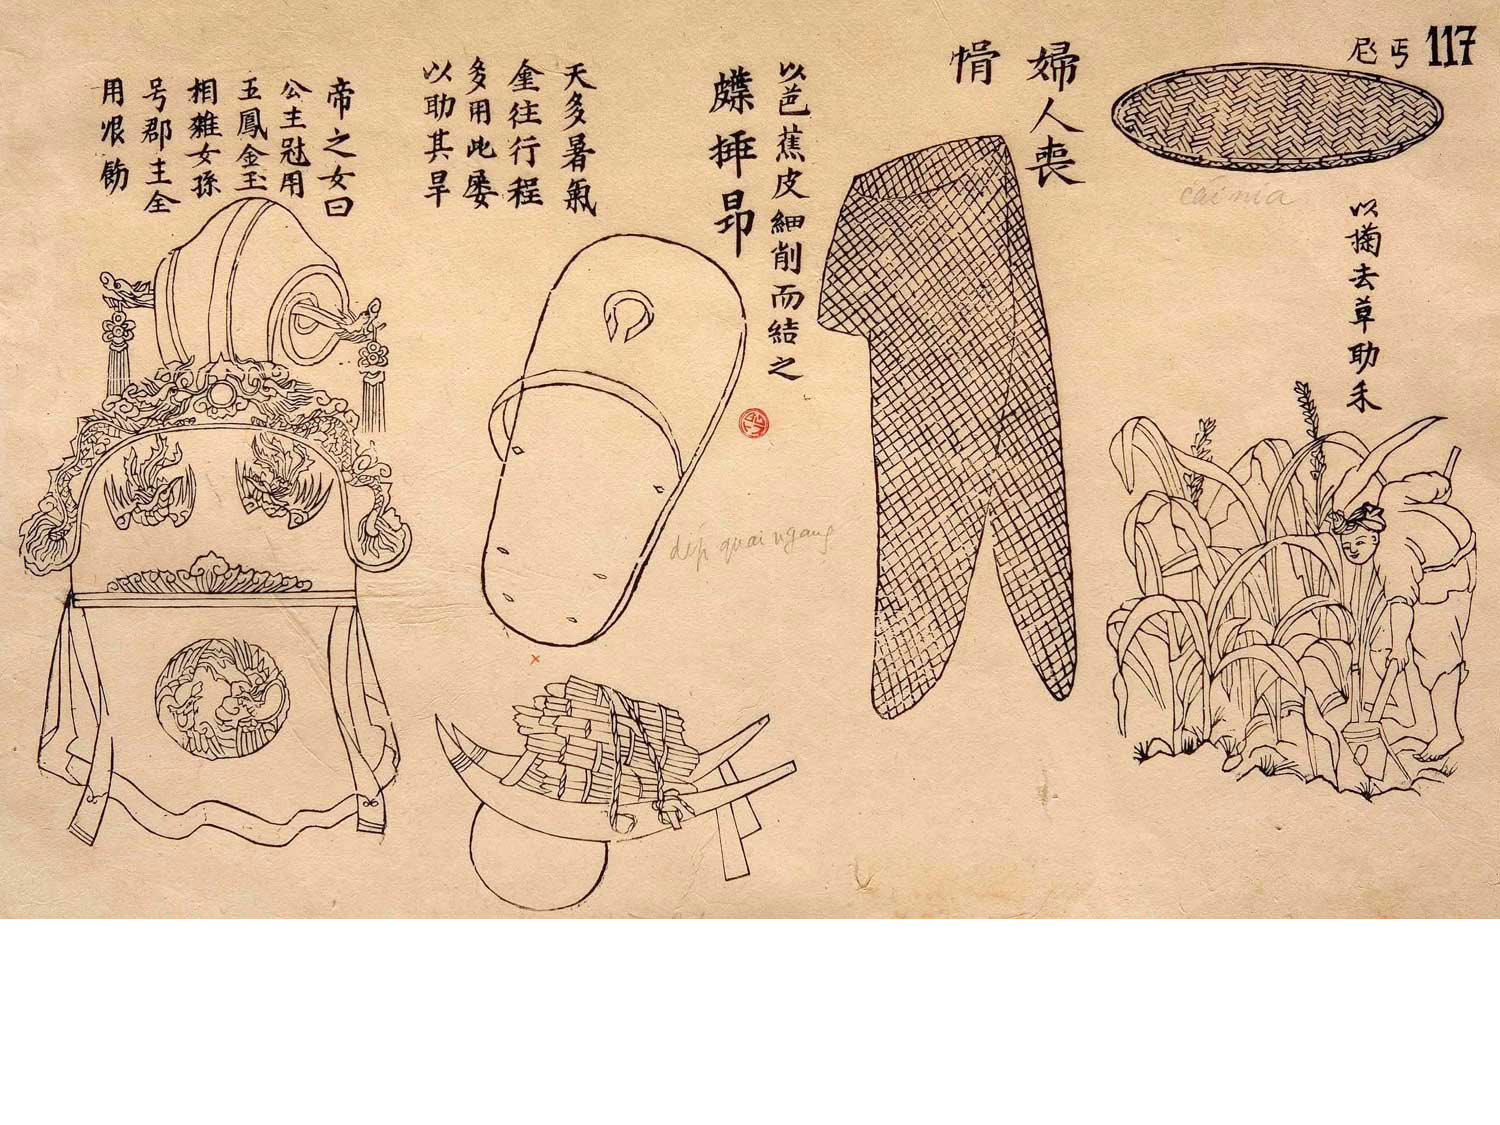 117
cái nia
以搊去草助禾
婦人喪
以芭蕉皮細削而結之
昂
dép quai ngang
天多暑氣
往行程
多用此屡
以助其旱
帝之女曰
公主冠用
五鳳金玉
相雜女孫
号郡主全
用